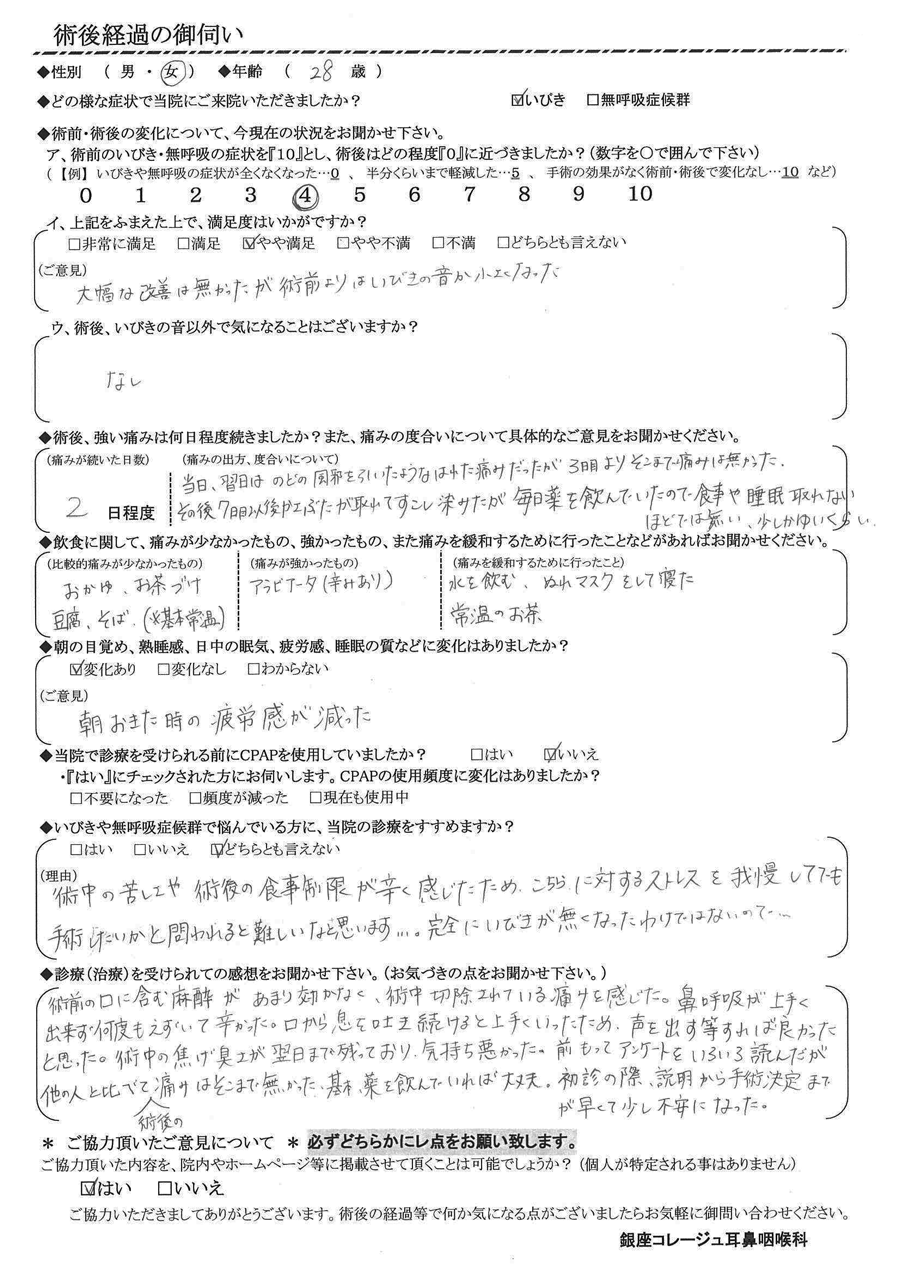 術後経過の御伺い
◆性別 （ 男 ・ 女 ） ◆年齢 （ 28 歳 ）
◆どの様な症状で当院にご来院いただきましたか？ ☑いびき □無呼吸症候群
◆術前・術後の変化について、今現在の状況をお聞かせ下さい。
ア、術前のいびき・無呼吸の症状を『10』とし、術後はどの程度『0』に近づきましたか？（数字を○で囲んで下さい）
（ 【例】 いびきや無呼吸の症状が全くなくなった…0 、 半分くらいまで軽減した…5 、 手術の効果がなく術前・術後で変化なし…10 など）
0 1 2 3 4 5 6 7 8 9 10
イ、上記をふまえた上で、満足度はいかがですか？
□非常に満足 □満足 ☑やや満足 □やや不満 □不満 □どちらとも言えない
（ご意見）
大幅な改善は無かったが術前よりはいびきの音が小さくなった
ウ、術後、いびきの音以外で気になることはございますか？
なし
◆術後、強い痛みは何日程度続きましたか？また、痛みの度合いについて具体的なご意見をお聞かせください。
（痛みが続いた日数） （痛みの出方、度合いについて）
当日、翌日は のどの風邪を引いたようなはれた痛みだったが 3日目よりそこまで痛みは無かった。
2 日程度 その後7日目以後かさぶたが取れてすこし染みたが 毎日薬を飲んでいたので食事や睡眠取れない
ほどでは無い、少しかゆいくらい.
◆飲食に関して、痛みが少なかったもの、強かったもの、また痛みを緩和するために行ったことなどがあればお聞かせください。
（比較的痛みが少なかったもの） （痛みが強かったもの） （痛みを緩和するために行ったこと）
おかゆ、お茶づけ アラビアータ（辛みあり） 水を飲む、ぬれマスクをして寝た
豆腐、そば.（※基本常温） 常温のお茶
◆朝の目覚め、熟睡感、日中の眠気、疲労感、睡眠の質などに変化はありましたか？
☑変化あり □変化なし □わからない
（ご意見）
朝おきた時の疲労感が減った
◆当院で診療を受けられる前にCPAPを使用していましたか？ □はい ☑いいえ
・『はい』にチェックされた方にお伺いします。CPAPの使用頻度に変化はありましたか？
□不要になった □頻度が減った □現在も使用中
◆いびきや無呼吸症候群で悩んでいる方に、当院の診療をすすめますか？
□はい □いいえ ☑どちらとも言えない
（理由）
術中の苦しさや 術後の食事制限が辛く感じたため、こちらに対するストレスを我慢してでも
手術したいかと問われると難しいなと思います…。完全にいびきが無くなったわけではないので…
◆診療（治療）を受けられての感想をお聞かせ下さい。（お気づきの点をお聞かせ下さい。）
術前の口に含む麻酔が あまり効かなく、術中切除されている痛みを感じた。鼻呼吸が上手く
出来ず何度もえずいて辛かった。口から息を吐き続けると上手くいったため、声を出す等すれば良かった
と思った。術中の焦げ臭さが翌日まで残っており、気持ち悪かった。前もってアンケートをいろいろ読んだが
他の人と比べて痛みはそこまで無かった、基本、薬を飲んでいれば大丈夫。初診の際、説明から手術決定まで
術後の が早くて少し不安になった。
＊ ご協力頂いたご意見について ＊ 必ずどちらかにレ点をお願い致します。
ご協力頂いた内容を、院内やホームページ等に掲載させて頂くことは可能でしょうか？（個人が特定される事はありません）
☑はい □いいえ
ご協力いただきましてありがとうございます。術後の経過等で何か気になる点がございましたらお気軽に御問い合わせください。
銀座コレージュ耳鼻咽喉科